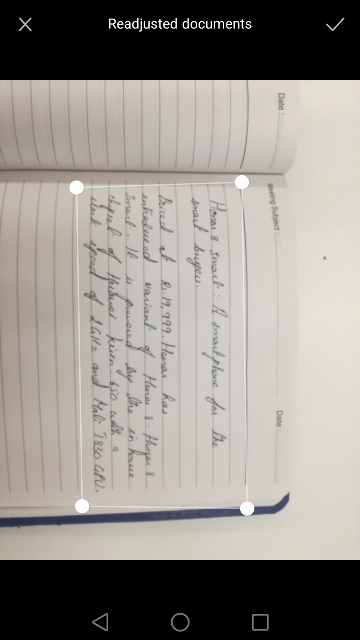 Readjusted documents
Date :
Meeting Subject :
Date :
Honor 8 smart : A smartphone for the
smart buyer.
Priced at Rs. 19,999 Honor has
introduced variant of Honor 8. Honor 8
smart. It is powered by the in house
chipset of Huawei kirin 650 with a
clock speed of 2GHz and Mali T830 GPU.